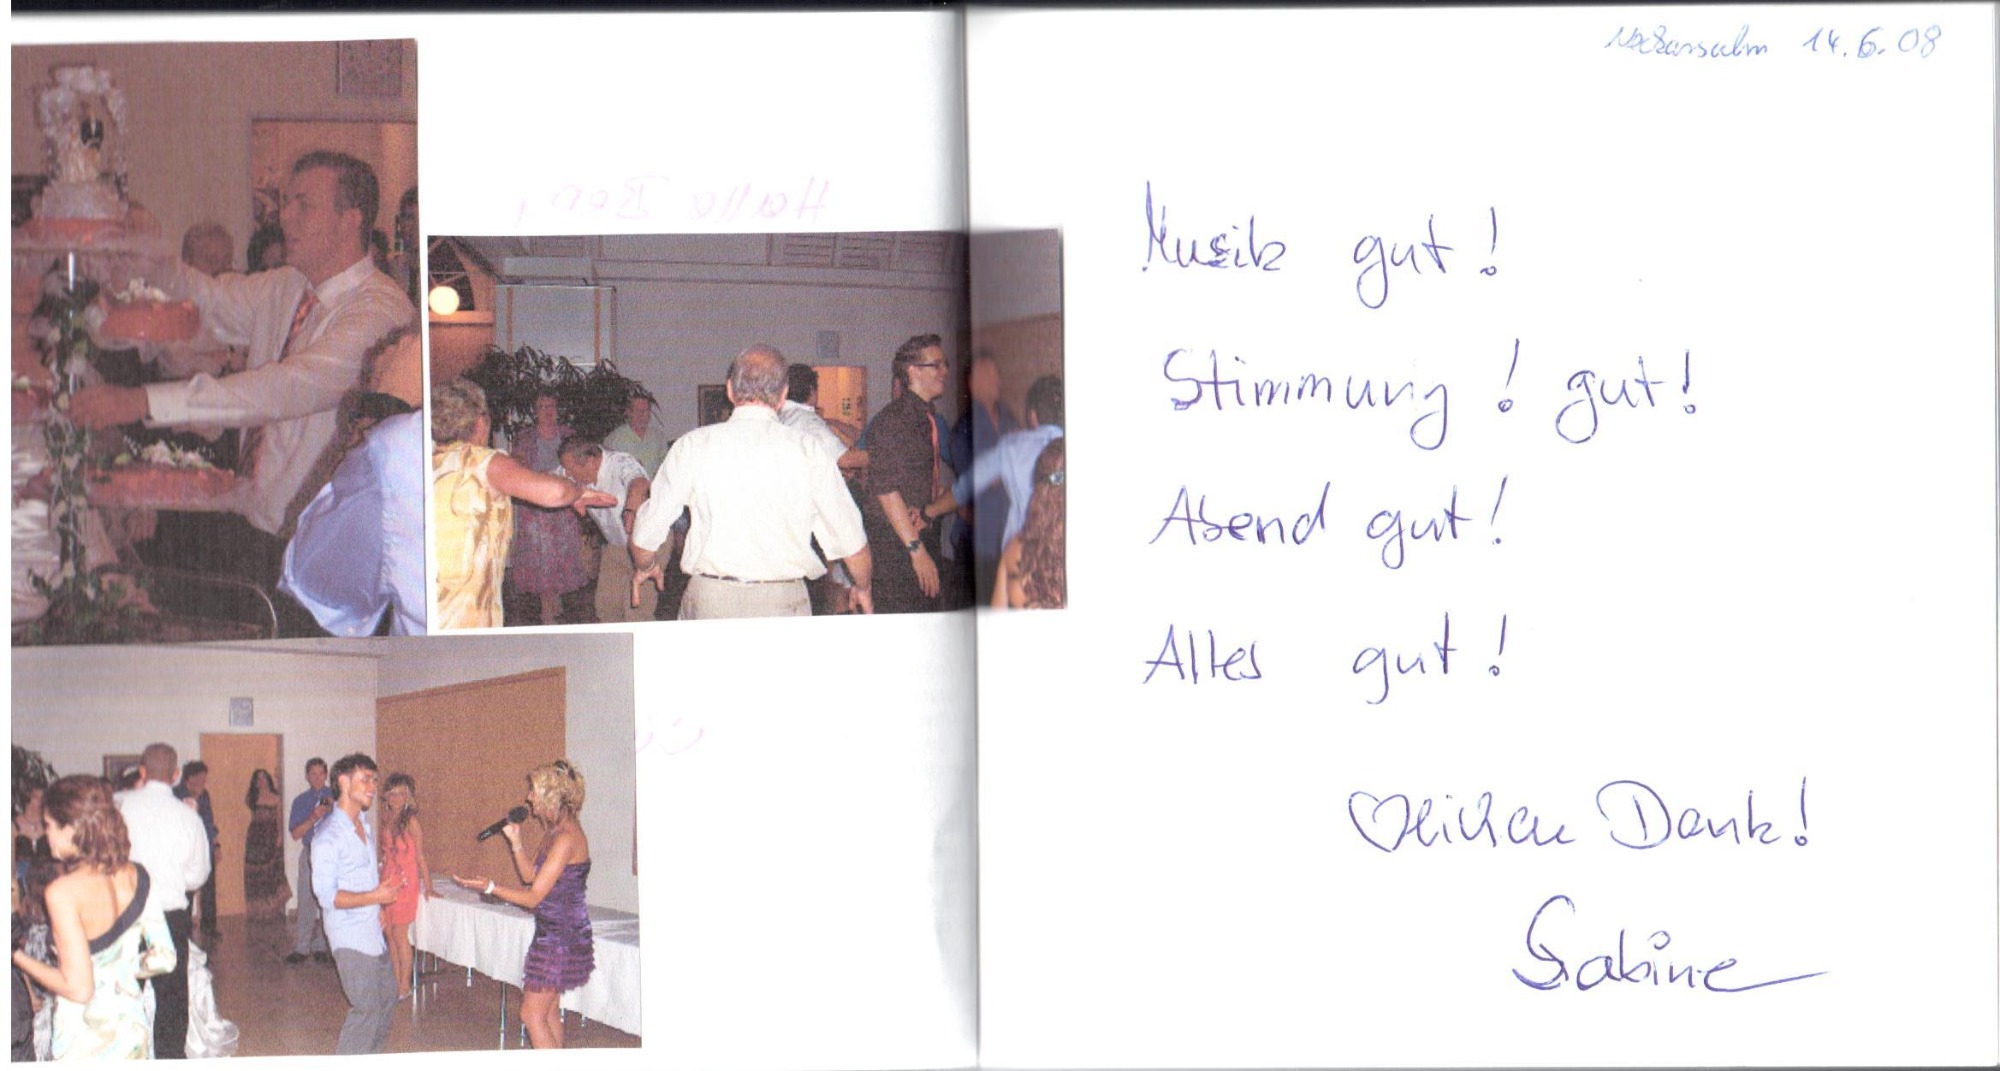 Neckarsulm 14.6.08
Musik gut!
Stimmung! gut!
Abend gut!
Alles gut!
♡lichen Dank!
Sabine